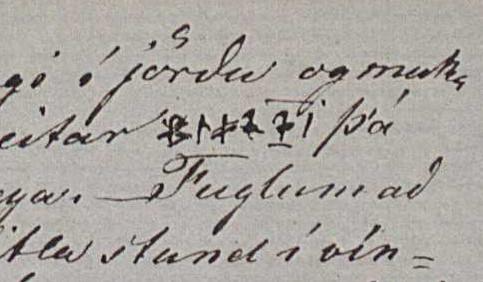 gi í jörðu og muka
eitar þá
eya. — Fuglum að
itla stund í vín=